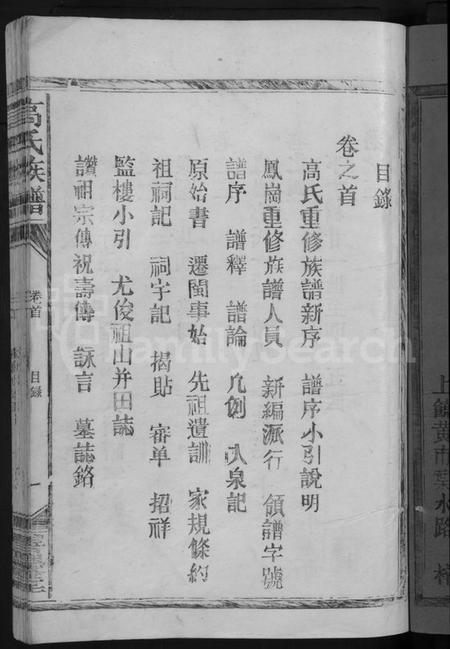 目錄
卷之首
高氏重修族譜新序 譜序小引說明
鳳崗重修族譜人員 新編派行 領譜字號
譜序 譜釋 譜論 凡例 入泉記
原始書 遷閩事始 先祖遺訓 家規條約
祖祠記 祠宇記 揭貼 審单 招祥
監樓小引 尤俊祖山并田誌
讚祖宗傳祝壽傳 詠言 墓誌銘
高氏族譜
卷首
目錄
一
FamilySearch